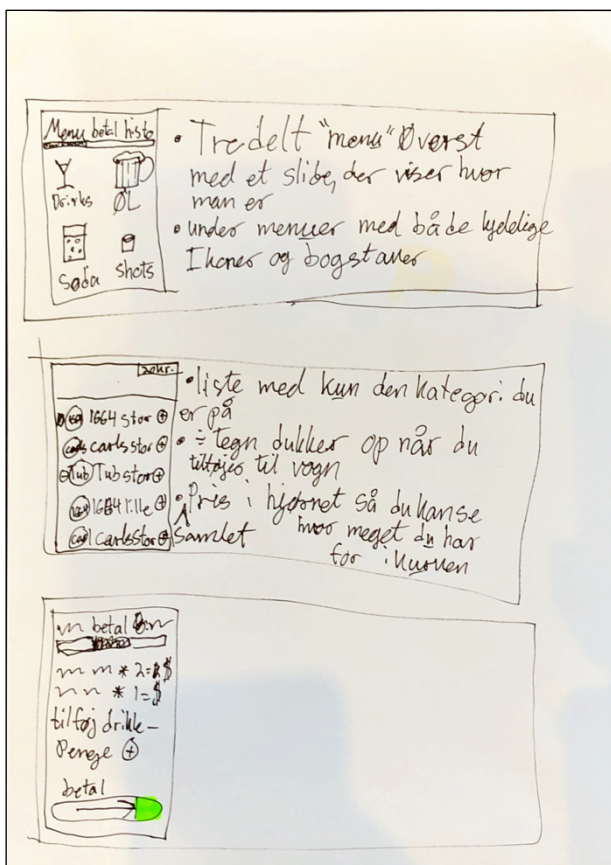 Menu betal histo
Drinks ØL
Soda shots
• Tredelt "menu" Øverst
med et slide, der viser hvor
man er
• under menuer med både tydelige
Ikoner og bogstaver
kr.
1664 stor +
carls carlsstor +
Tub Tubstor +
1664 lille +
carl carlsstor +
• liste med kun den kategori du
er på
• ÷ tegn dukker op når du
tilføjes til vogn
• Pris i hjørnet så du kan se
Samlet hvor meget du har
for i kurven
betal
* 2= $
* 1= $
tilføj drikke-
Penge +
betal